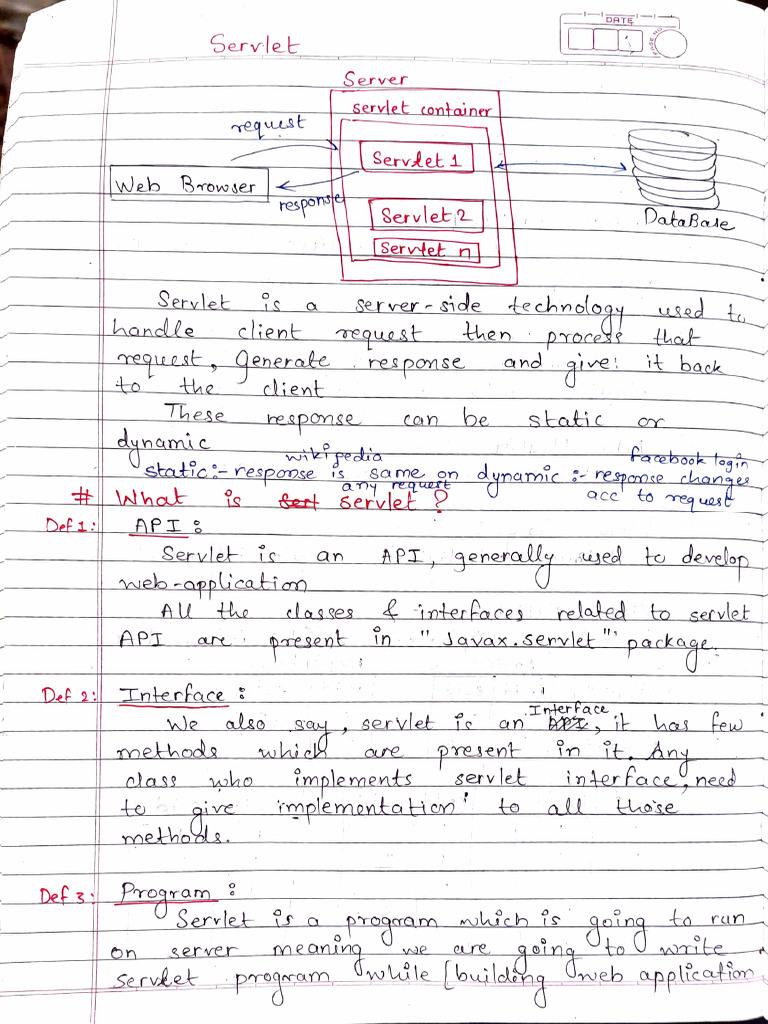 DATE
PAGE NO.
Servlet
Server
servlet container
request
Servlet 1
Web Browser
response
Servlet 2
DataBase
Servlet n
Servlet is a server-side technology used to
handle client request then process that
request, Generate response and give it back
to the client
These response can be static or
dynamic
wikipedia
facebook login
static:- response is same on dynamic :- response changes
any request
acc to request
# What is servlet ?
Def 1: API :
Servlet is an API, generally used to develop
web-application
All the classes & interfaces related to servlet
API are present in "Javax.servlet" package.
Def 2: Interface :
Interface
We also say, servlet is an API, it has few
methods which are present in it. Any
class who implements servlet interface, need
to give implementation to all those
methods.
Def 3: Program :
Servlet is a program which is going to run
on server meaning we are going to write
servlet program while [building web application